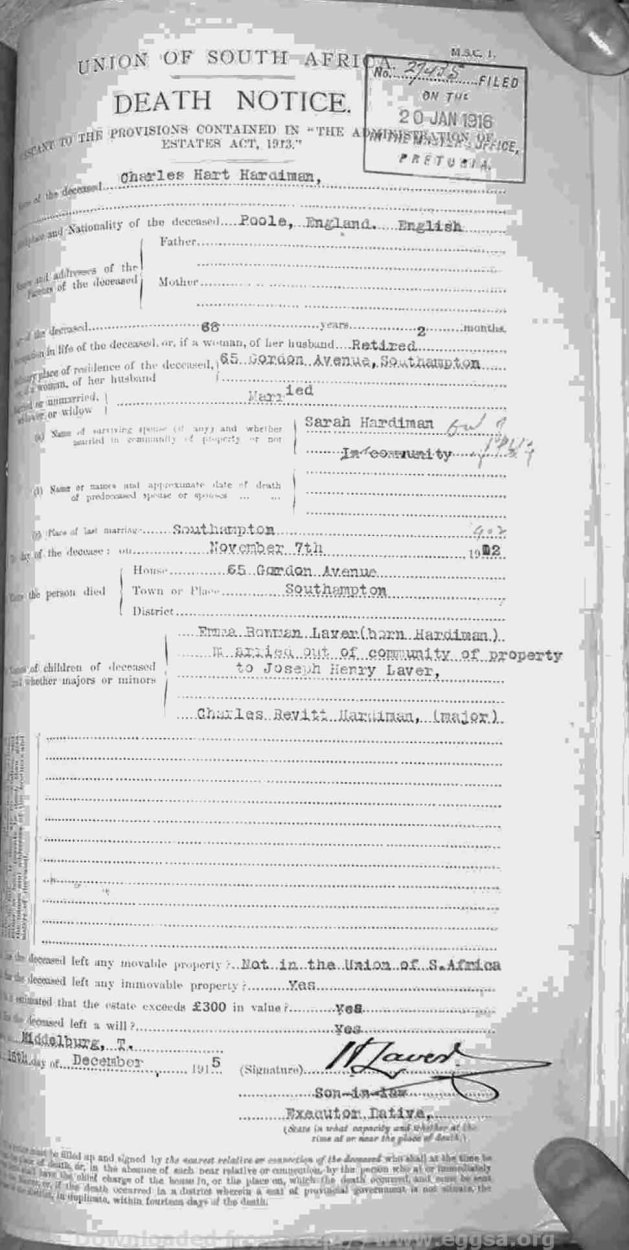 M.S.C. 1.
UNION OF SOUTH AFRICA.
No. 27485 FILED
ON THE
20 JAN 1916
IN THE MASTER'S OFFICE,
PRETORIA.
DEATH NOTICE.
TO THE PROVISIONS CONTAINED IN "THE ADMINISTRATION OF
ESTATES ACT, 1913."
of the deceased Charles Hart Hardiman,
and Nationality of the deceased Poole, England. English
Father
and addresses of the
of the deceased
Mother
of the deceased 68 years 2 months.
in life of the deceased, or, if a woman, of her husband Retired
place of residence of the deceased, 65 Gordon Avenue, Southampton
woman, of her husband
or unmarried, Married
or widow
(a) Name of surviving spouse (if any) and whether Sarah Hardiman
married in community of property or not In community
(b) Name or names and approximate date of death
of predeceased spouse or spouses
(c) Place of last marriage Southampton
day of the decease: on November 7th 1902
House 65 Gordon Avenue
the person died Town or Place Southampton
District
Emma Bowman Laver (born Hardiman)
of children of deceased married out of community of property
whether majors or minors to Joseph Henry Laver,
Charles Revitt Hardiman, (major)
the deceased left any movable property? Not in the Union of S.Africa
the deceased left any immovable property? Yes
estimated that the estate exceeds £300 in value? Yes
the deceased left a will? Yes
Middelburg, T.
16th day of December 1915 (Signature) Laver
Son-in-law
Executor Dative,
(State in what capacity and whether at the
time at or near the place of death.)
must be filled up and signed by the nearest relative or connection of the deceased who shall at the time be
of death, or, in the absence of such near relative or connection, by the person who at or immediately
have the chief charge of the house in, or the place on, which the death occurred, and must be sent
or, if the death occurred in a district wherein a seat of provincial government is not situate, the
in duplicate, within fourteen days of the death.
Downloaded from www.eggsa.org